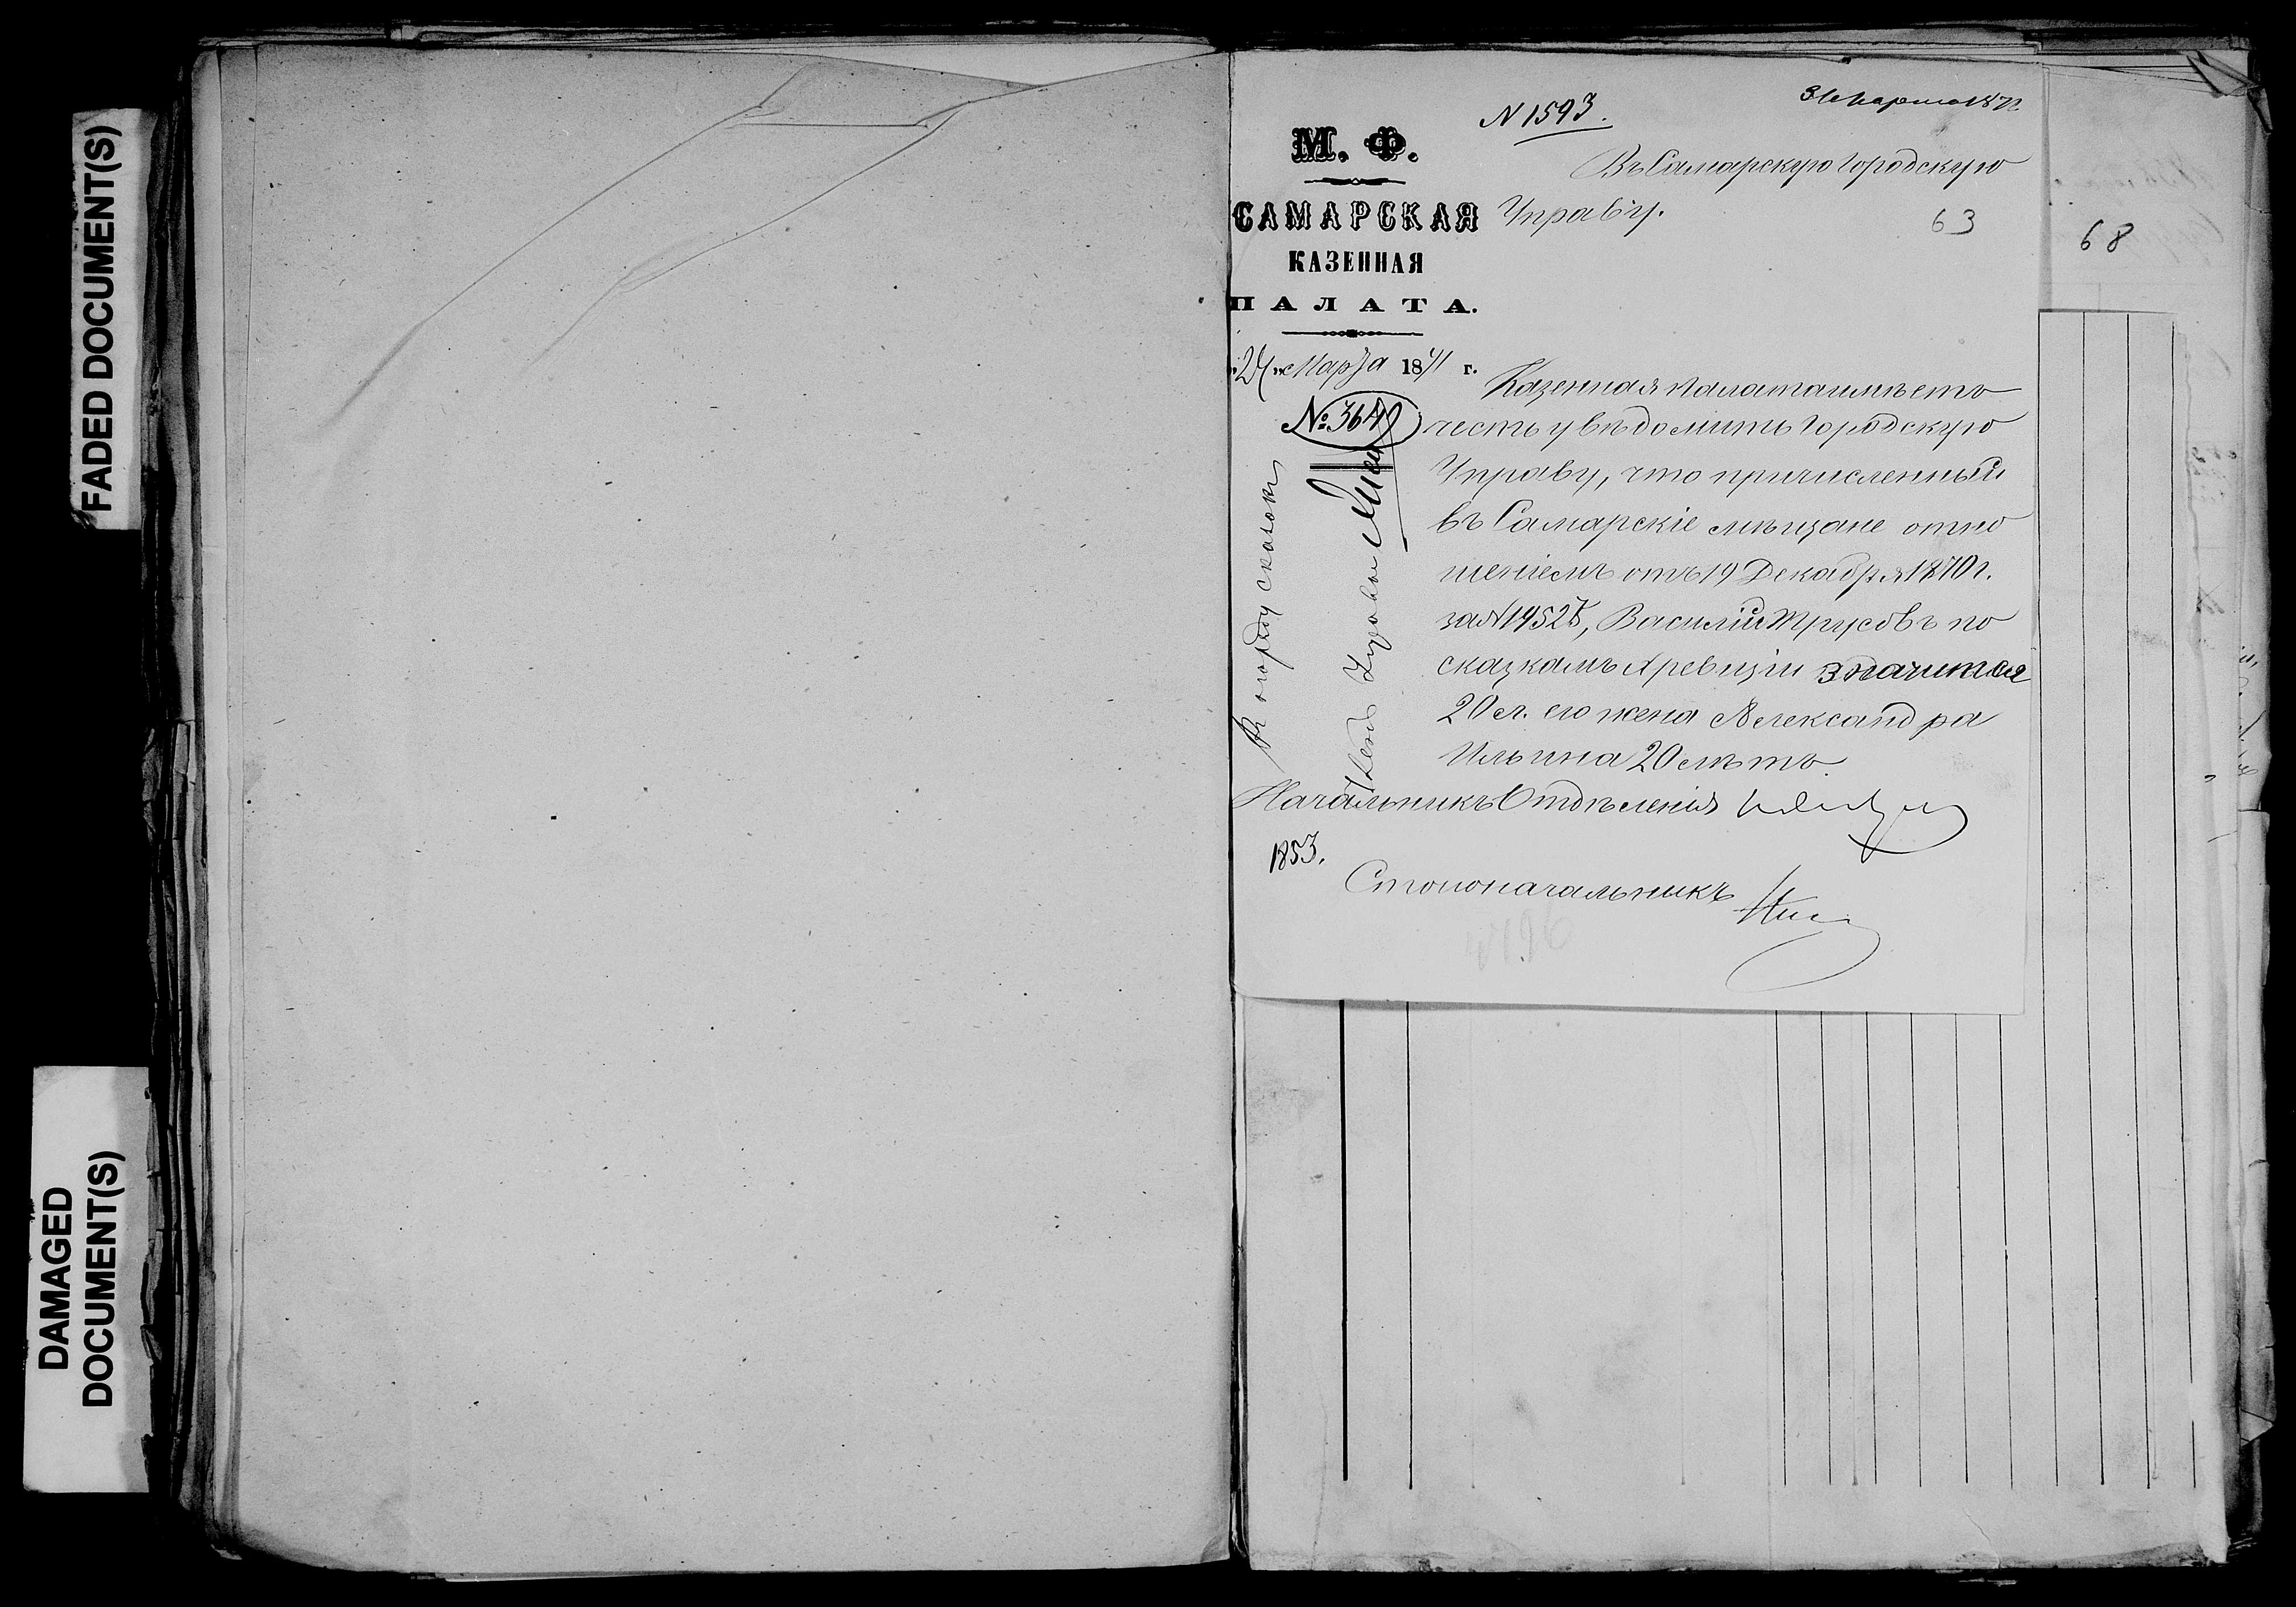 FADED DOCUMENT(S)
DAMAGED
DOCUMENT(S)
N 1593.
31 Марта 1871
М. Ф.
САМАРСКАЯ
КАЗЕННАЯ
ПАЛАТА.
Марта 1871 г.
№ 3649
Въ Самарскую Городскую
Управу.
63
68
Казенная Палата имѣетъ
честь увѣдомить Городскую
Управу, что причисленный
въ Самарскіе мѣщане отно
шеніемъ отъ 19 Декабря 1870 г.
за N 14525, Василій Трусовъ по
сказкамъ X ревизіи значится
20 л. его жена Александра
Ильина 20 лѣтъ.
Начальникъ Отдѣленія
1853.
Столоначальникъ